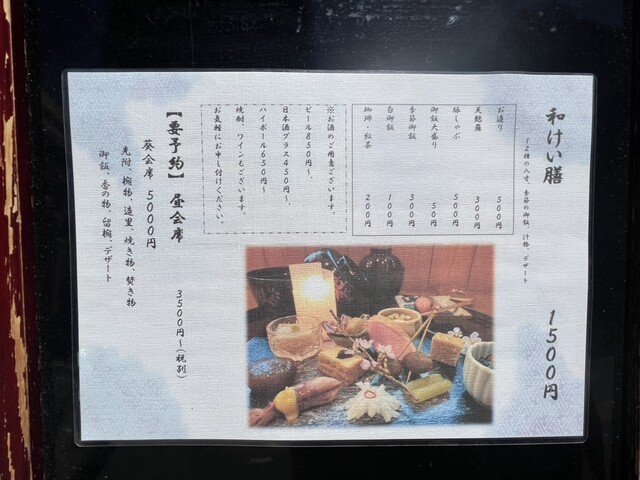 和けい膳 1500円
12種の八寸、季節の御飯、汁物、デザート
お造り 500円
天麩羅 300円
豚しゃぶ 500円
御飯大盛り 50円
季節御飯 300円
白御飯 100円
珈琲・紅茶 200円
※お酒のご用意ございます。
ビール850円〜、
日本酒グラス450円〜、
ハイボール650円〜
焼酎、ワインもございます。
お気軽にお申し付けください。
【要予約】 昼会席 3500円〜(税別)
葵会席 5000円
先附、椀物、造里、焼き物、焚き物
御飯、香の物、留椀、デザート